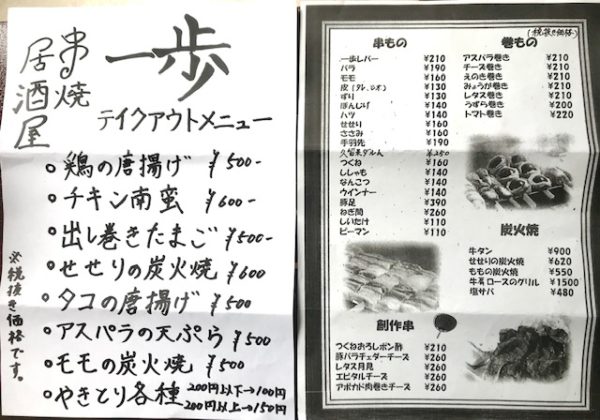 串焼
居酒屋
一歩
テイクアウトメニュー
鶏の唐揚げ ¥500-
チキン南蛮 ¥600-
出し巻きたまご ¥500-
せせりの炭火焼 ¥600
タコの唐揚げ ¥500
アスパラの天ぷら ¥500
モモの炭火焼 ¥500
やきとり各種 200円以下→100円
200円以上→150円
※税抜き価格です。
(税抜き価格)
串もの
一歩レバー ¥210
バラ ¥190
モモ ¥160
皮(タレ、シオ) ¥130
ずり ¥130
ぼんじり ¥140
ハツ ¥140
せせり ¥160
ささみ ¥160
手羽先 ¥190
久留米ダルム ¥250
つくね ¥160
ししゃも ¥140
なんこつ ¥140
ウインナー ¥140
豚足 ¥390
ねぎ間 ¥260
しいたけ ¥110
ピーマン ¥110
巻もの
アスパラ巻き ¥210
チーズ巻き ¥210
えのき巻き ¥210
みょうが巻き ¥210
レタス巻き ¥210
うずら巻き ¥200
トマト巻き ¥220
炭火焼
牛タン ¥900
せせりの炭火焼 ¥620
ももの炭火焼 ¥550
牛肩ロースのグリル ¥1500
塩サバ ¥480
創作串
つくねおろしポン酢 ¥210
豚バラチェダーチーズ ¥260
レタス月見 ¥260
エビタルチーズ ¥260
アボカド肉巻きチーズ ¥260